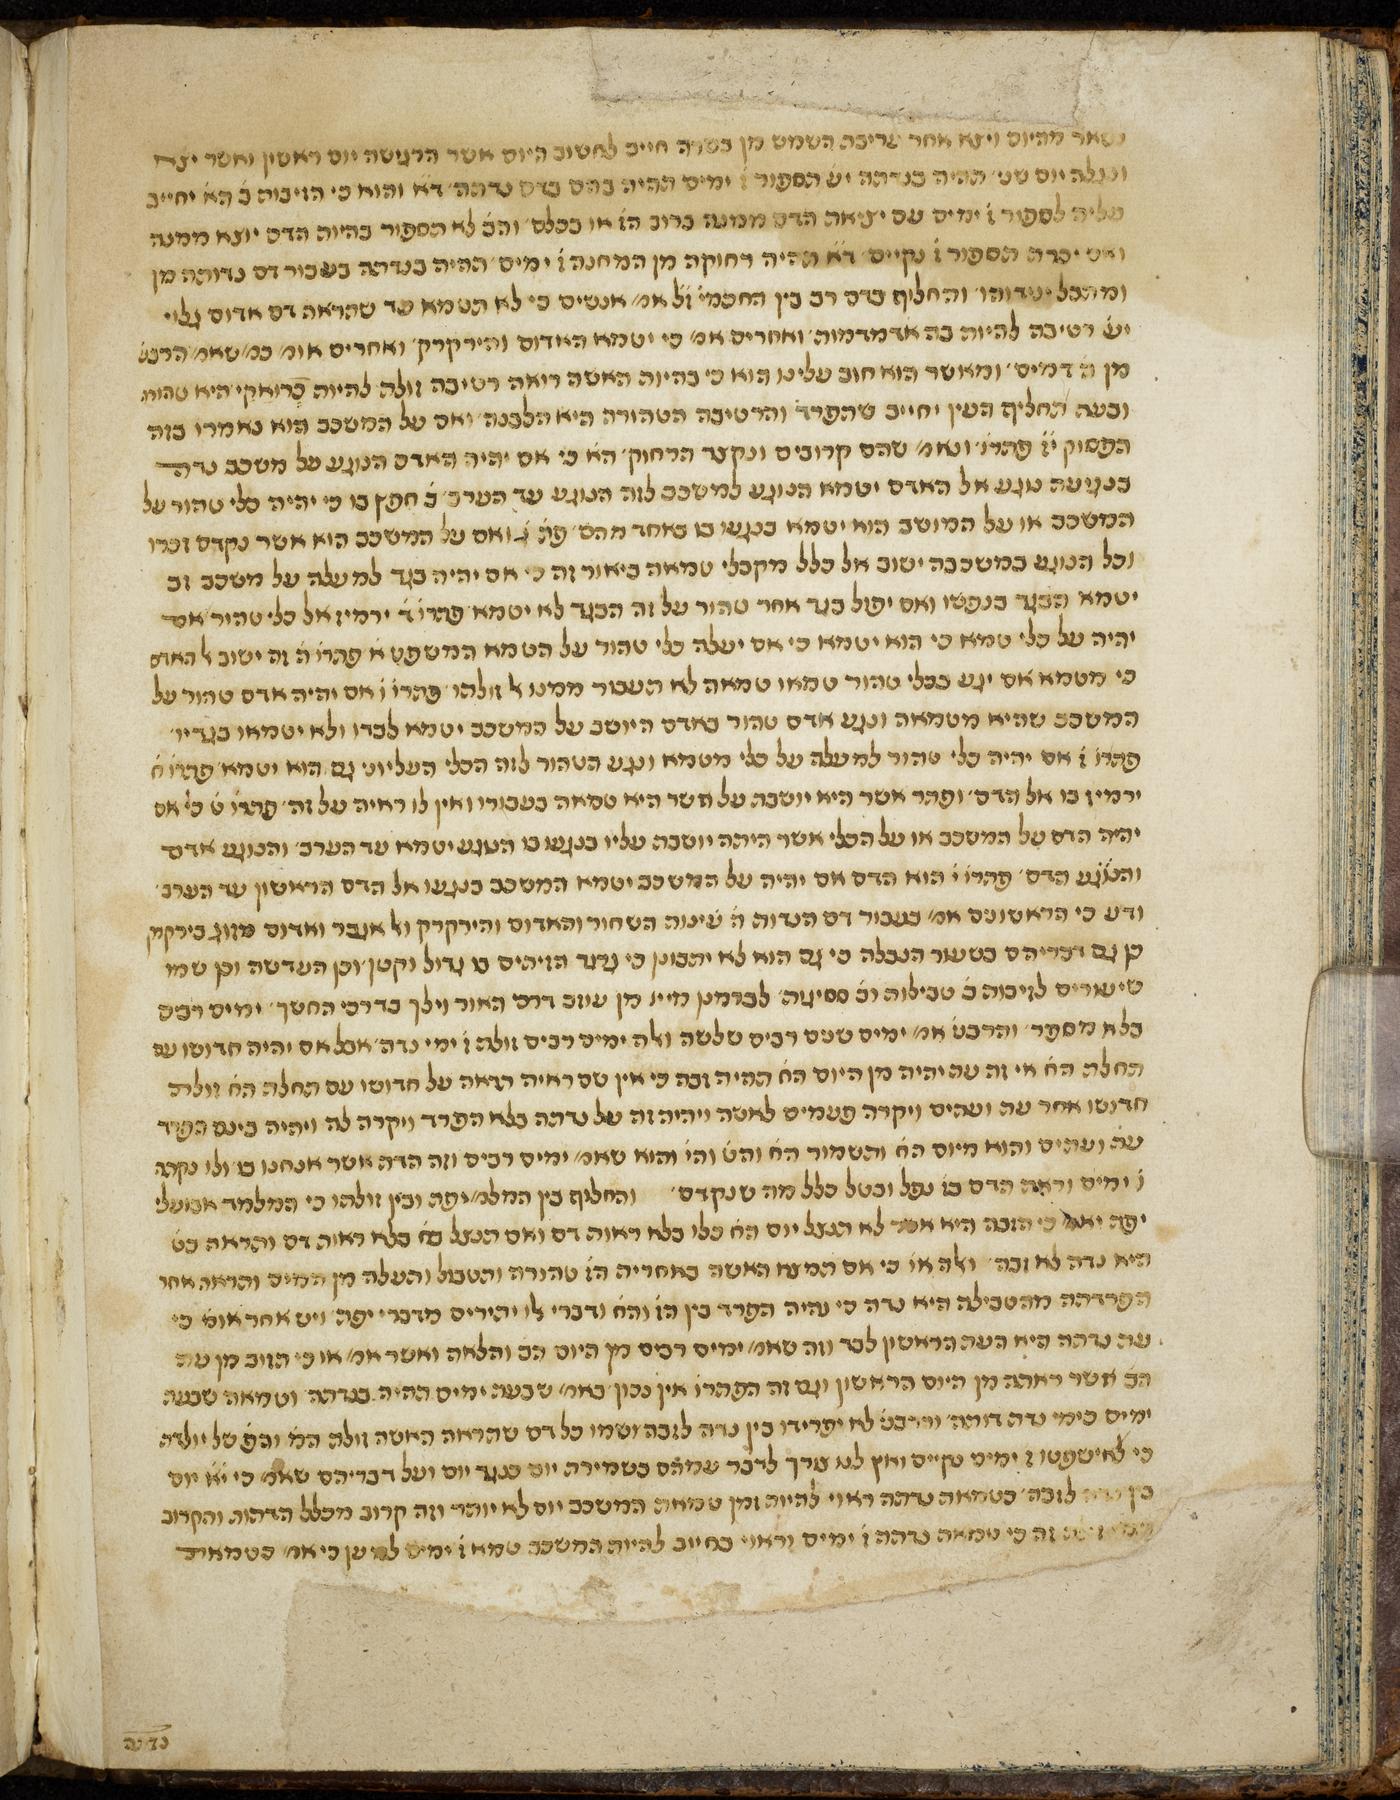 נשאר מהיום ויצא אחר עריבת השמש מן בשרה חייב לחשוב היום אשר הרגישה יום ראשון ואשר יצא
ונגלה יום שני תהיה בנדתה יש תספור ז ימים תהיה בהם בדם נדתה דא והוא כי הזיבות ב הא יחייב
עליה לספור ז ימים עם יציאת הדם ממנה ברוב הז או בכלם והב לא תספור בהיות הדם יוצא ממנה
ואם יכרת תספור ז נקיים דא תהיה רחוקה מן המחנה ז ימים תהיה בנדתה בעבור דם נדותה מן
והחליף בדם רב בין החכמי זל אמ אנשים כי לא תטמא עד שתראה דם אדום גלוי
יש רטיבה להיות בה אדמדמות ואחרים אמ כי יטמא האדום והירקרק ואחרים אומ כמ שאמ הרבנ
מן ה דמים ומאשר הוא חוב עלינו הוא כי בהיות האשה רואה רטיבה זולה להיות כרואקי היא טהורה
ובעת תחליף העין יחייב שהפרד והרטיבה הטהורה היא הלבנה ואם על המשכב הוא נאמרו בזה
הפסוק יו פתרו ונאמ שהם קרובים ונקצר הרחוק הא כי אם יהיה האדם הנוגע על משכב נדה
בנגיעה נוגע אל האדם יטמא הנוגע למשכב לזה הנוגע עד הערב ב חפץ בו כי יהיה כלי טהור על
המשכב או על המושב הוא יטמא בנגעו בו באחד מהם פת ג ואם על המשכב הוא אשר נקדם זכרו
וכל הנוגע במשכבה ישוב אל כלל מקבלי טמאה ביאור זה כי אם יהיה בגד למעלה על משכב זב
יטמא הבגד בנפשו ואם יפול בגד אחר טהור על זה הבגד לא יטמא פתרו ד ירמיז אל כלי טהור אם
יהיה על כלי טמא כי הוא יטמא כי אם יעלה כלי טהור על הטמא המשפט א פתרו ה זה ישוב לאדם
כי מטמא אם יגע בכלי טהור טמאו טמאה לא תעבור ממנו ל זולתו פתרו ו אם יהיה אדם טהור על
המשכב שהיא מטמאה ונגע אדם טהור באדם היושב על המשכב יטמא לבדו ולא יטמאו בגדיו
פתרו ז אם יהיה כלי טהור למעלה על כלי מטמא ונגע הטהור לזה הכלי העליוני גם הוא יטמא פתרו ח
ירמיז בו אל הדם ופתר אשר היא יושבת על אשר היא טמאה בעבורו ואין לו ראיה על זה פתרו ט כי אם
יהיה הדם על המשכב או על הכלי אשר היתה יושבת עליו בנגעו בו הנוגע יטמא עד הערב והנוגע אדם
והנוגע הדם פתרו י הוא הדם אם יהיה על המשכב יטמא המשכב בנגעו אל הדם הראשון עד הערב
ודע כי הראשונים אמ בעבור דם הנדות ה עינות השחור והאדום והירקרק ול אנבר ואדום מזוג בירקרק
כן גם דבריהם בשעור הנבלה כי גם הוא לא יתכונן כי נדנד הזיתים בו גדול וקטן וכן העדשה וכן שמו
שיעורים לזיבות ב טבילות וב ספירות לברמינן מיינ מן עוזב דרכי האור וילך בדרכי החשך ימים רבים
בלא מספר והרבנ אמ ימים שנים רבים שלשה ואלה ימים רבים זולת ז ימי נדה אבל אם יהיה חדושו עם
תחלת הח אי זה עת יהיה מן היום הח תהיה זבה כי אין שם ראיה תראה על חדושו עם תחלת הח זולת
חדושו אחר עת ועתים ויקרה פעמים לאשה ויהיה זה על נדתה בלא הפרד ויקרה לה ויהיה בינם הפרד
עת ועתים והוא מיום הח והשמור הח והט והי והוא שאמ ימים רבים וזה הדת אשר אנחנו בו ולו נקרה
ז ימים וראה הדם בו נפל ובטל כלל מה שנקדם והחליף בין המלמ יפת ובין זולתו כי המלמד אבועלי
יפת יאמ כי הזבה היא אשר לא תגנל יום הח כלו בלא ראות דם ואם תטבל בח בלא ראות דם ותראה בט
היא נדה לא זבה ואלה או כי אם תמצא האשה באחרית הז טהורה ותטבול ותעלה מן המים ותראה אחר
הפרדתה מהטבילה היא נדה כי נהיה הפרד בין הז והח ודברי לו יתירים מדברי יפת ויש אחר אומ כי
עת נדתה היא העת הראשון לבד וזה שאמ ימים רבים מן היום הב והלאה ואשר אמ או כי תזוב מן עת
הב אשר ראתה מן היום הראשון וגם זה הפתרו אין נכון באמ שבעת ימים תהיה בנדתה וטמאה שבעת
ימים כימי נדת דותה והרבנ לא יפרידו בין נדה לזבה ושמו כל דם שתראה האשה זולת המ והפ של יולדת
כי לא ישפטו ז ימים נקיים ואין לנו צורך לדבר עמהם בשמירת יום כנגד יום ועל דבריהם שאמ כי יא יום
בין נדה לזבה בטמאה נדתה ראוי להיות זמן טמאת המשכב יום לא יותר וזה קרוב מכלל הדתות והקרוב
זה כי טמאה נדתה ז ימים וראוי בחייב להיות המשכב טמא ז ימים למען כי אמ כטמאת
נדתה